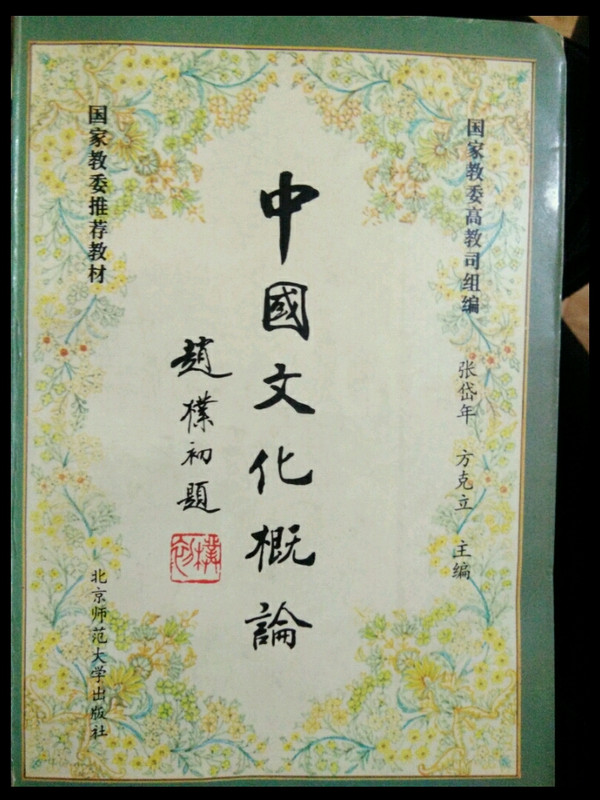 国家教委高教司组编
张岱年 方克立 主编
中國文化概論
趙樸初題
樸初
国家教委推荐教材
北京师范大学出版社